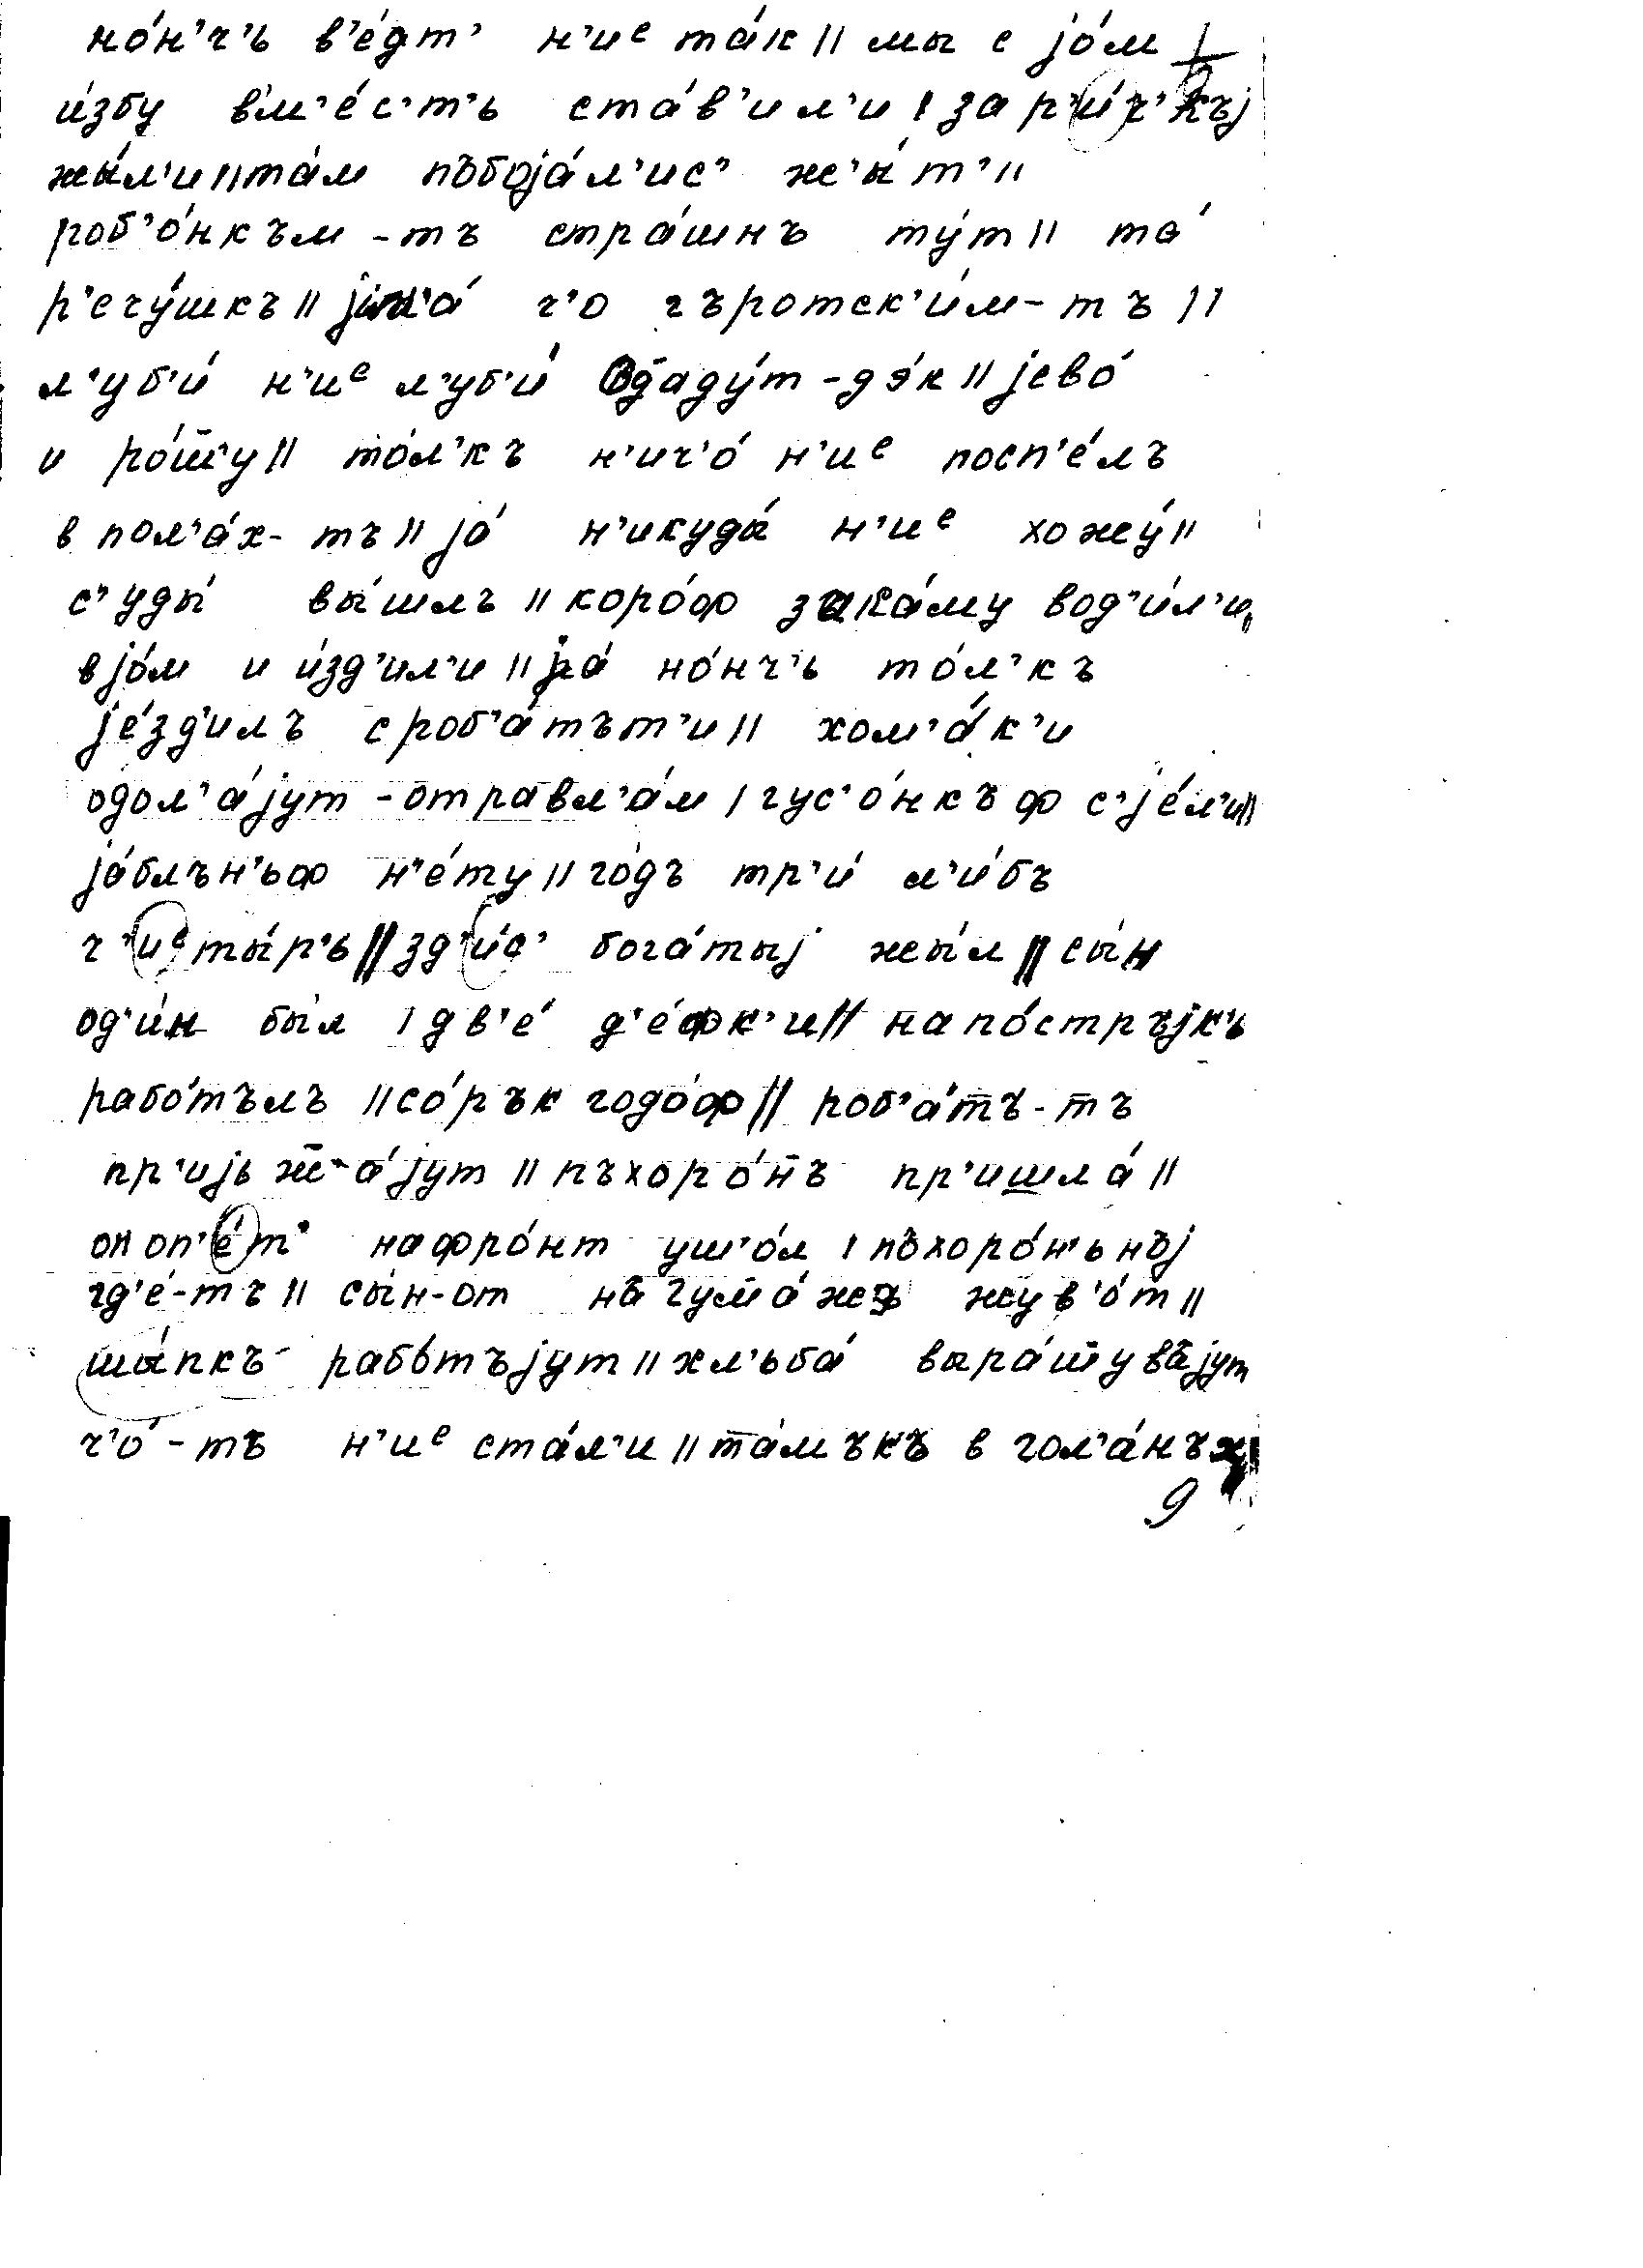 но́н'ч'ь в'е́дт' н'иᵉ та́к || мы с jо́м
и́збу вм'е́с'т'ь ста́в'ил'и | за р'и́ч'къj
жы́л'и || та́м пъбоjа́л'ис' ж'ы́т' ||
роб'о́нкъм-тъ стра́шнъ ту́т || та́
р'ечу́шкъ || ч'о гъротск'и́м-тъ ||
л'уб'и́ н'иᵉ л'уб'и́ о̄таду́т-дэ́к || jево́
и ро́ш̄'у || то́л'къ н'ич'о́ н'иᵉ посп'е́лъ
в пол'а́х-тъ || jа́ н'икуда́ н'иᵉ хожу́ ||
с'уды́ вы́шлъ || коро́ф зака́му вод'и́л'и,
вjо́м и и́зд'ил'и || jа́ но́нч'ь то́л'къ
jе́зд'илъ с роб'а́тът'и || хом'а́к'и
одол'а́jут - отравл'а́м | гус'о́нкъф с'jе́л'и ||
jа́блън'ьф н'е́ту || го́дъ тр'и́ л'и́бъ
ч'иᵉты́р'ь || зд'и́с' бога́тыj жы́л || сы́н
од'и́н бы́л | дв'е́ д'е́фк'и || на по́стръjк'ь
рабо́тълъ || со́рък годо́ф || роб'а́т̄ъ-тъ
пр'иjьж̄'а́jут || пъхоро́н̄ъ пр'ишла́ ||
он оп'е́т' на фро́нт уш'о́л | пъхоро́н'ьнъj
гд'е́-тъ || сы́н-от на гум̄а́жъ жув'о́т ||
ша́пкъ рабо́тъjут || хл'ьба́ выра́ш̄увъjут
ч'о́-тъ н'иᵉ ста́л'и || та́мъкъ в гол'а́нъх
9